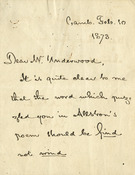 Cramb. Feb. 20
1873
Dear Mr Underwood,
It is quite clear to me
that the word which puzz-
gled you in Allston's
poem should be find
not wind